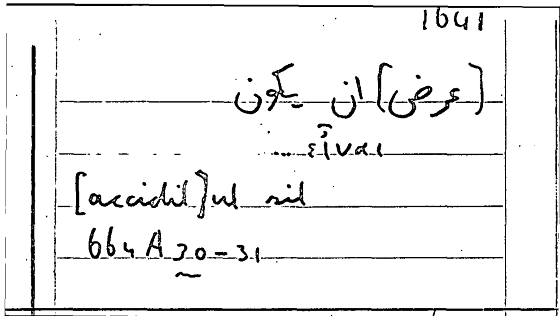 1641
[عرض] ان يكون
... εἶναι
[accidit] ut sit
664 A 30-31